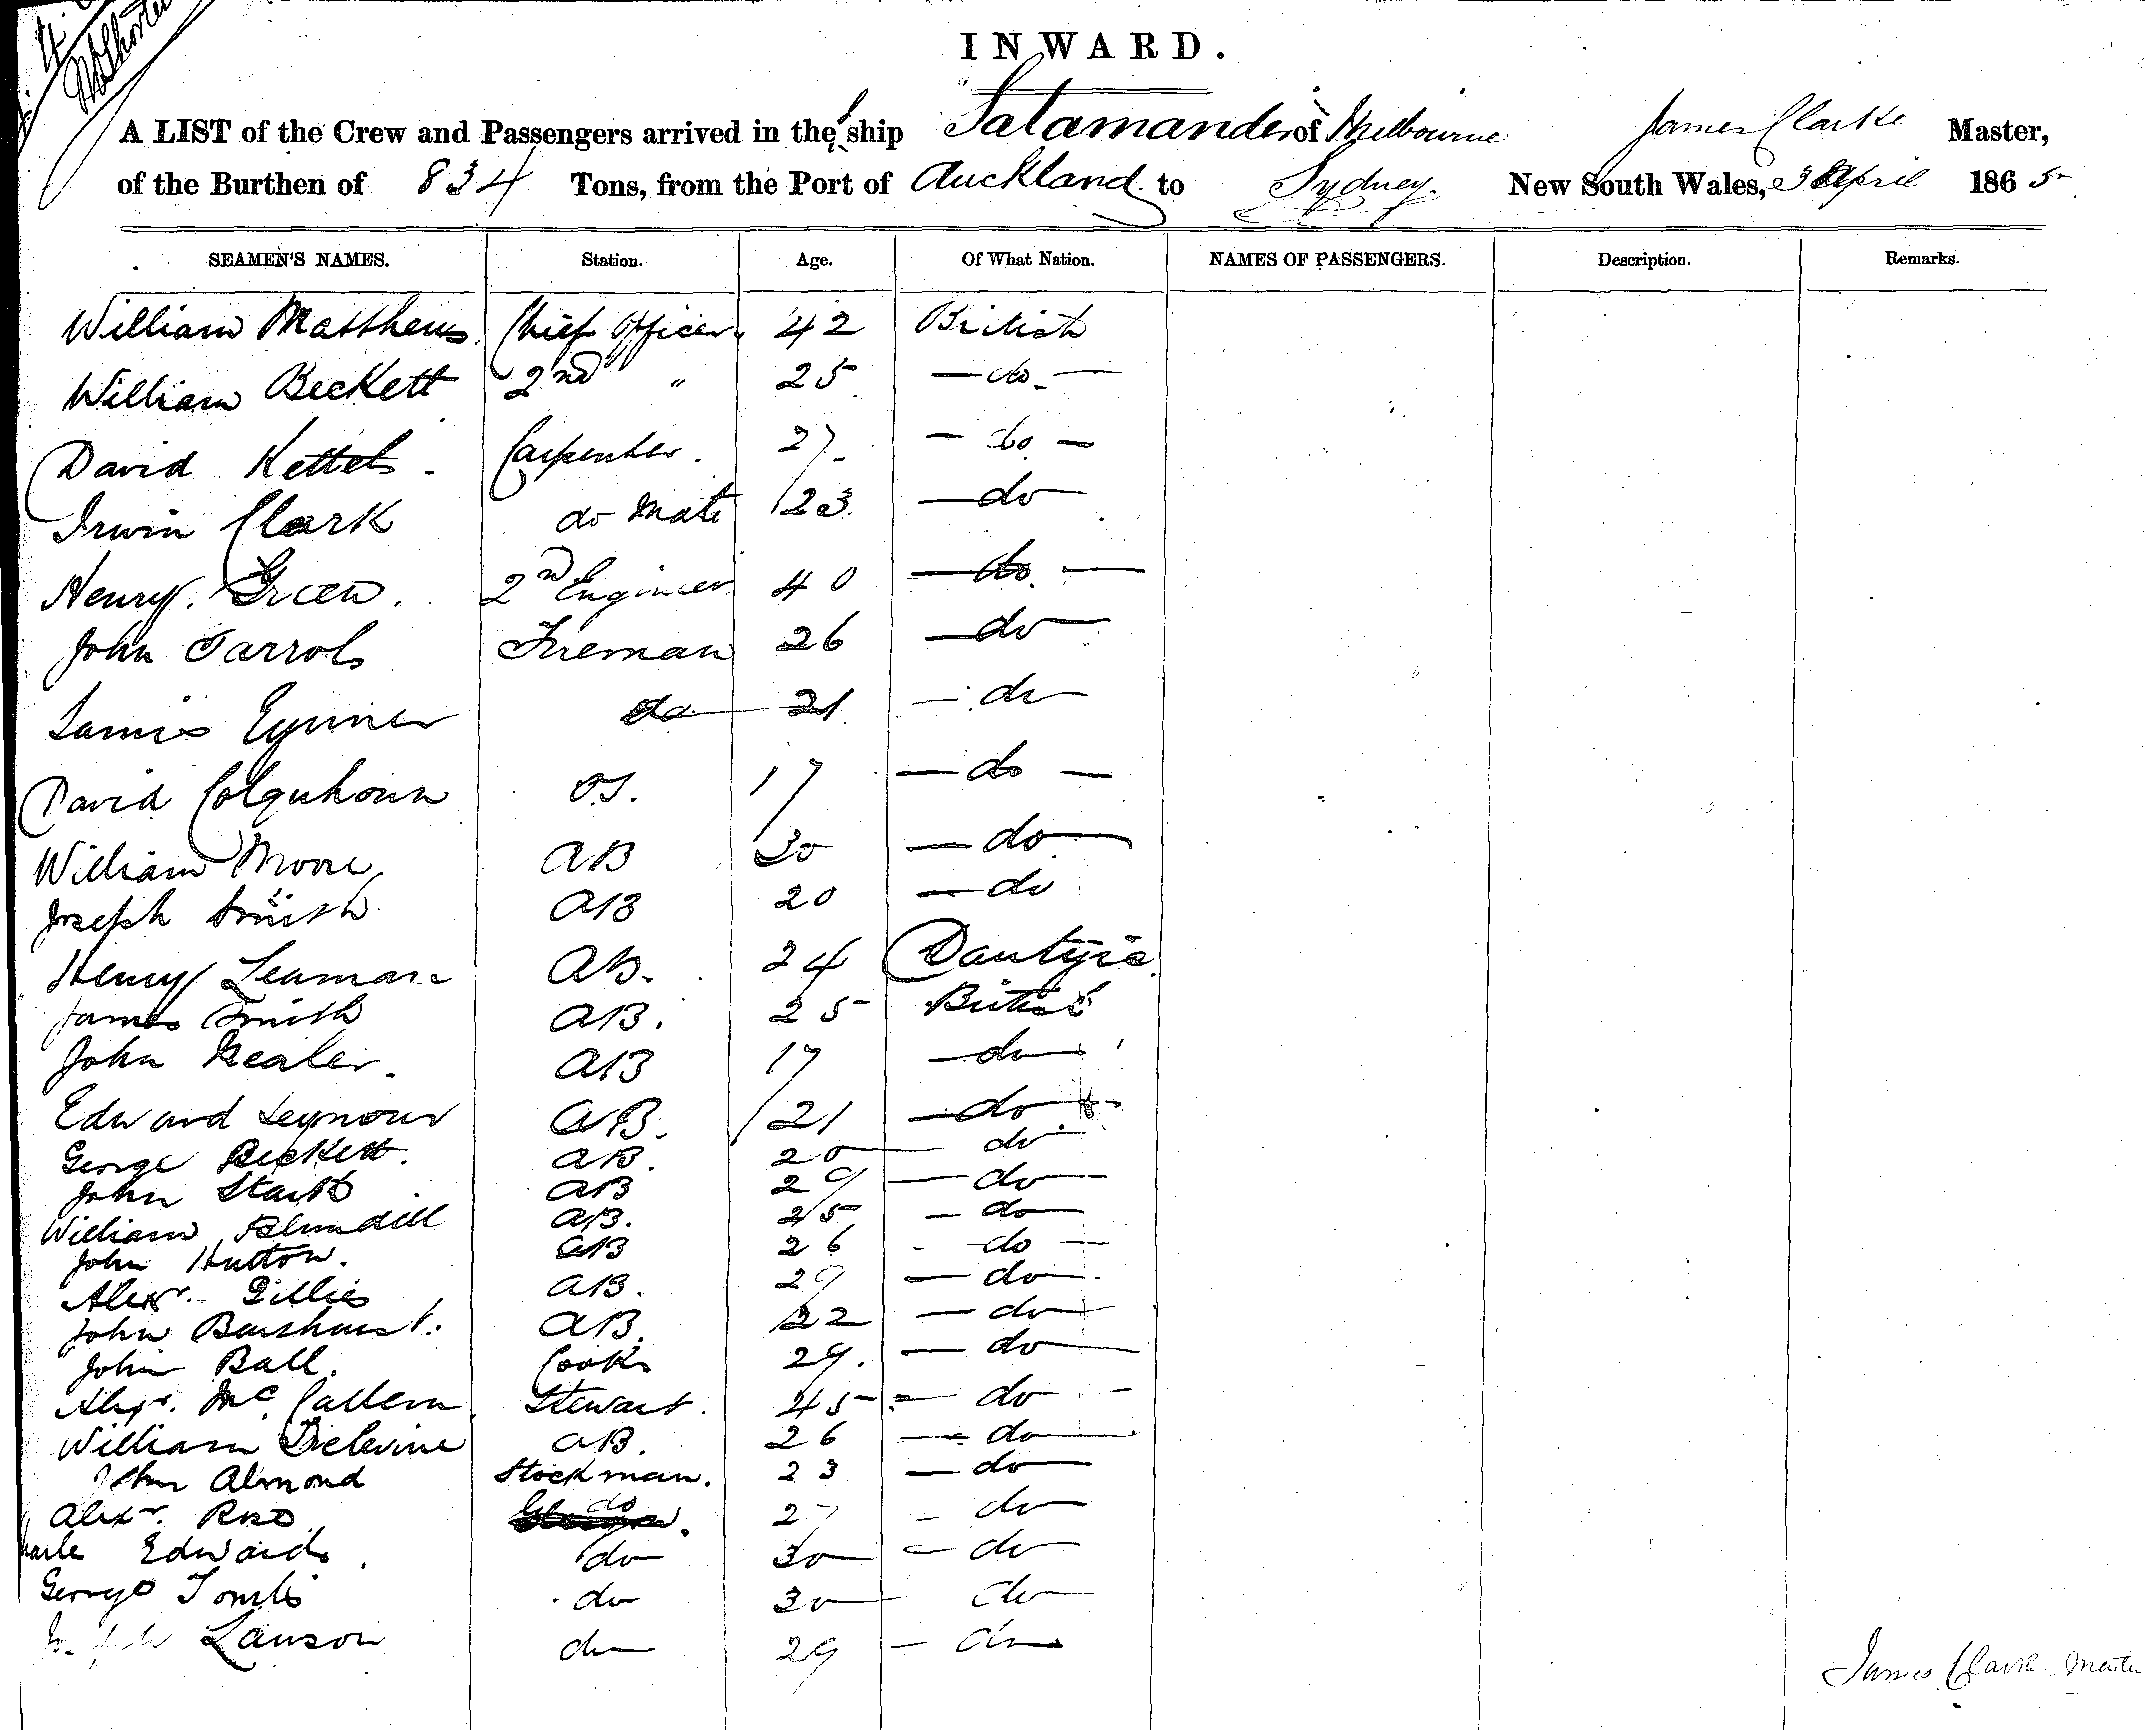 INWARD.
A LIST of the Crew and Passengers arrived in the ship Salamander of Melbourne James Clarke Master,
of the Burthen of 834 Tons, from the Port of Auckland to Sydney. New South Wales, 3 April 1865
SEAMEN'S NAMES. Station. Age. Of What Nation. NAMES OF PASSENGERS. Description. Remarks.
William Matthews Chief Officer 42 British
William Beckett 2nd " 25 - do -
David Kettels Carpenter. 27 - do -
Irwin Clark do Mate 23 - do
Henry Green. 2nd Engineer 40 - do -
John Farrols Fireman 26 - do
James do 21 - do
David Colquhoun OS. 17 - do -
William Moore AB 30 - do
Joseph Smith AB 20 - do
Henry Leaman AB. 24
James Smith AB. 25 British
John Nealer. AB 17 - do
Edward Seymour AB. 21 - do
George Beckett. AB. 20 do
John Stark AB 29 - do
William Blundell AB. 25 - do
John Hutton. AB 26 - do -
Alexr. Gillies AB. 29 - do
John AB. 22 - do
John Ball. Cook 29. - do
Alexr. Mc Callum Stewart. 45 - do -
William Delevine AB. 26 - do
John Almond Stockman. 23 - do
Alexr. Ross do 27 - do
Edwards do 30 - do
George Tombs do 30 do
Lawson do 29 - do
James Clark Master